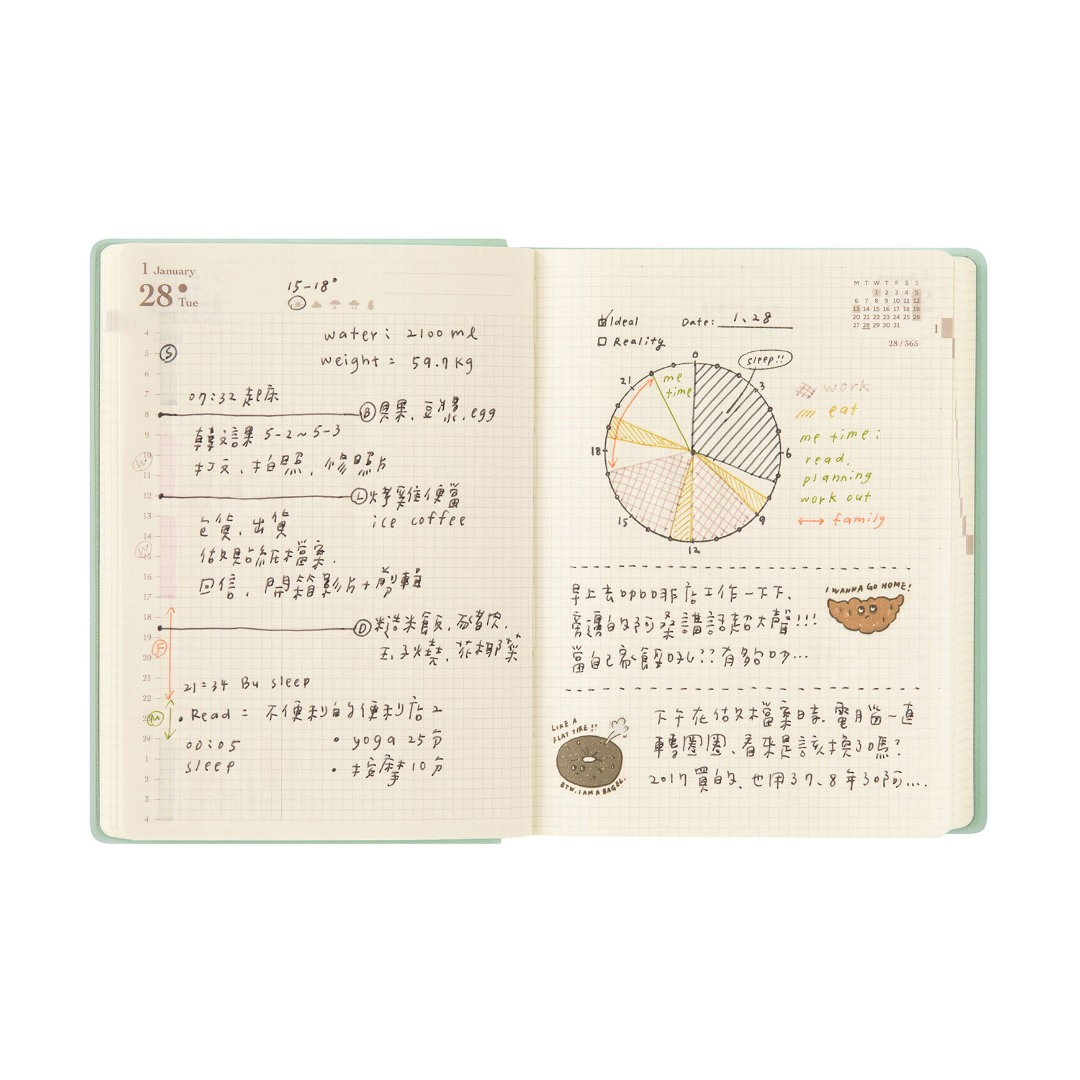 1 January
28 Tue
15-18°
water: 2100 ml
weight: 59.7 kg
S
07:32 起床
B 貝果、豆漿、egg
韓文課 5-2~5-3
打文、拍照、修照片
W
L 烤雞便當
ice coffee
包貨、出貨
做貼紙檔案、
W
回信、開箱影片+剪輯
D 糙米飯、豬肉、
玉子燒、花椰菜
F
21:34 Bu sleep
M
•Read: 不便利的便利店2
00:05
sleep
• yoga 25分
• 按摩 10分
4
5
6
7
8
9
10
11
12
13
14
15
16
17
18
19
20
21
22
23
24
1
2
3
4
M T W T F S S
1 2 3 4 5
6 7 8 9 10 11 12
13 14 15 16 17 18 19
20 21 22 23 24 25 26
27 28 29 30 31
28 / 365
1
Ideal
Reality
Date: 1.28
sleep!!
me time
0
3
6
9
12
15
18
21
work
eat
me time:
read,
planning
work out
family
早上去咖啡店工作一下下、
旁邊的阿桑講話超大聲!!!
當自己家餒吼?? 有夠吵...
I WANNA GO HOME!
下午在做檔案時、電腦一直
轉圈圈、看來是該換了嗎?
2017買的、也用了7、8年了阿....
LIKE A FLAT TIRE!!
BTW, I AM A BAGEL.